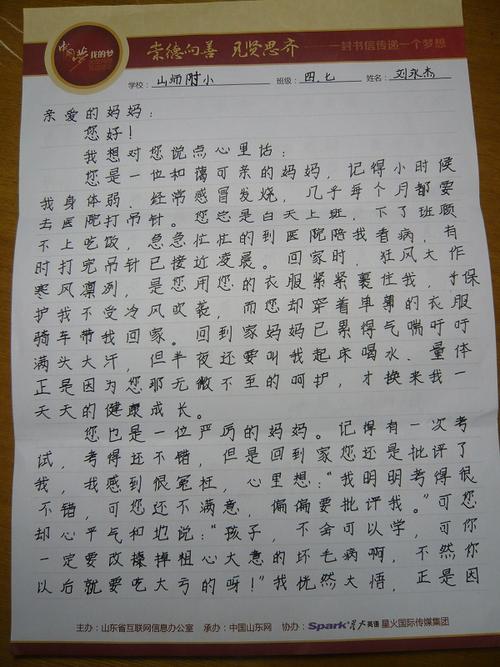 中国梦 我的梦
崇德向善 见贤思齐 一封书信传递一个梦想
学校：山师附小 班级：四.七 姓名：刘永杰
亲爱的妈妈：
您好！
我想对您说点心里话：
您是一位和蔼可亲的妈妈，记得小时候
我身体弱，经常感冒发烧，几乎每个月都要
去医院打吊针。您总是白天上班，下了班顾
不上吃饭，急急忙忙的到医院陪我看病，有
时打完吊针已接近凌晨。回家时，狂风大作
寒风凛冽，是您用您的衣服紧紧裹住我，才保
护我不受冷风吹袭，而您却穿着单薄的衣服
骑车带我回家。回到家妈妈已累得气喘吁吁
满头大汗，但半夜还要叫我起床喝水、量体
正是因为您那无微不至的呵护，才换来我一
天天的健康成长。
您也是一位严厉的妈妈。记得有一次考
试，考得还不错，但是回到家您还是批评了
我，我感到很冤枉，心里想：“我明明考得很
不错，可您还不满意，偏偏要批评我。”可您
却心平气和地说：“孩子，不会可以学，可你
一定要改掉粗心大意的坏毛病啊，不然你
以后就要吃大亏的呀！”我恍然大悟，正是因
主办：山东省互联网信息办公室 承办：中国山东网 协办：Spark®星火英语 星火国际传媒集团